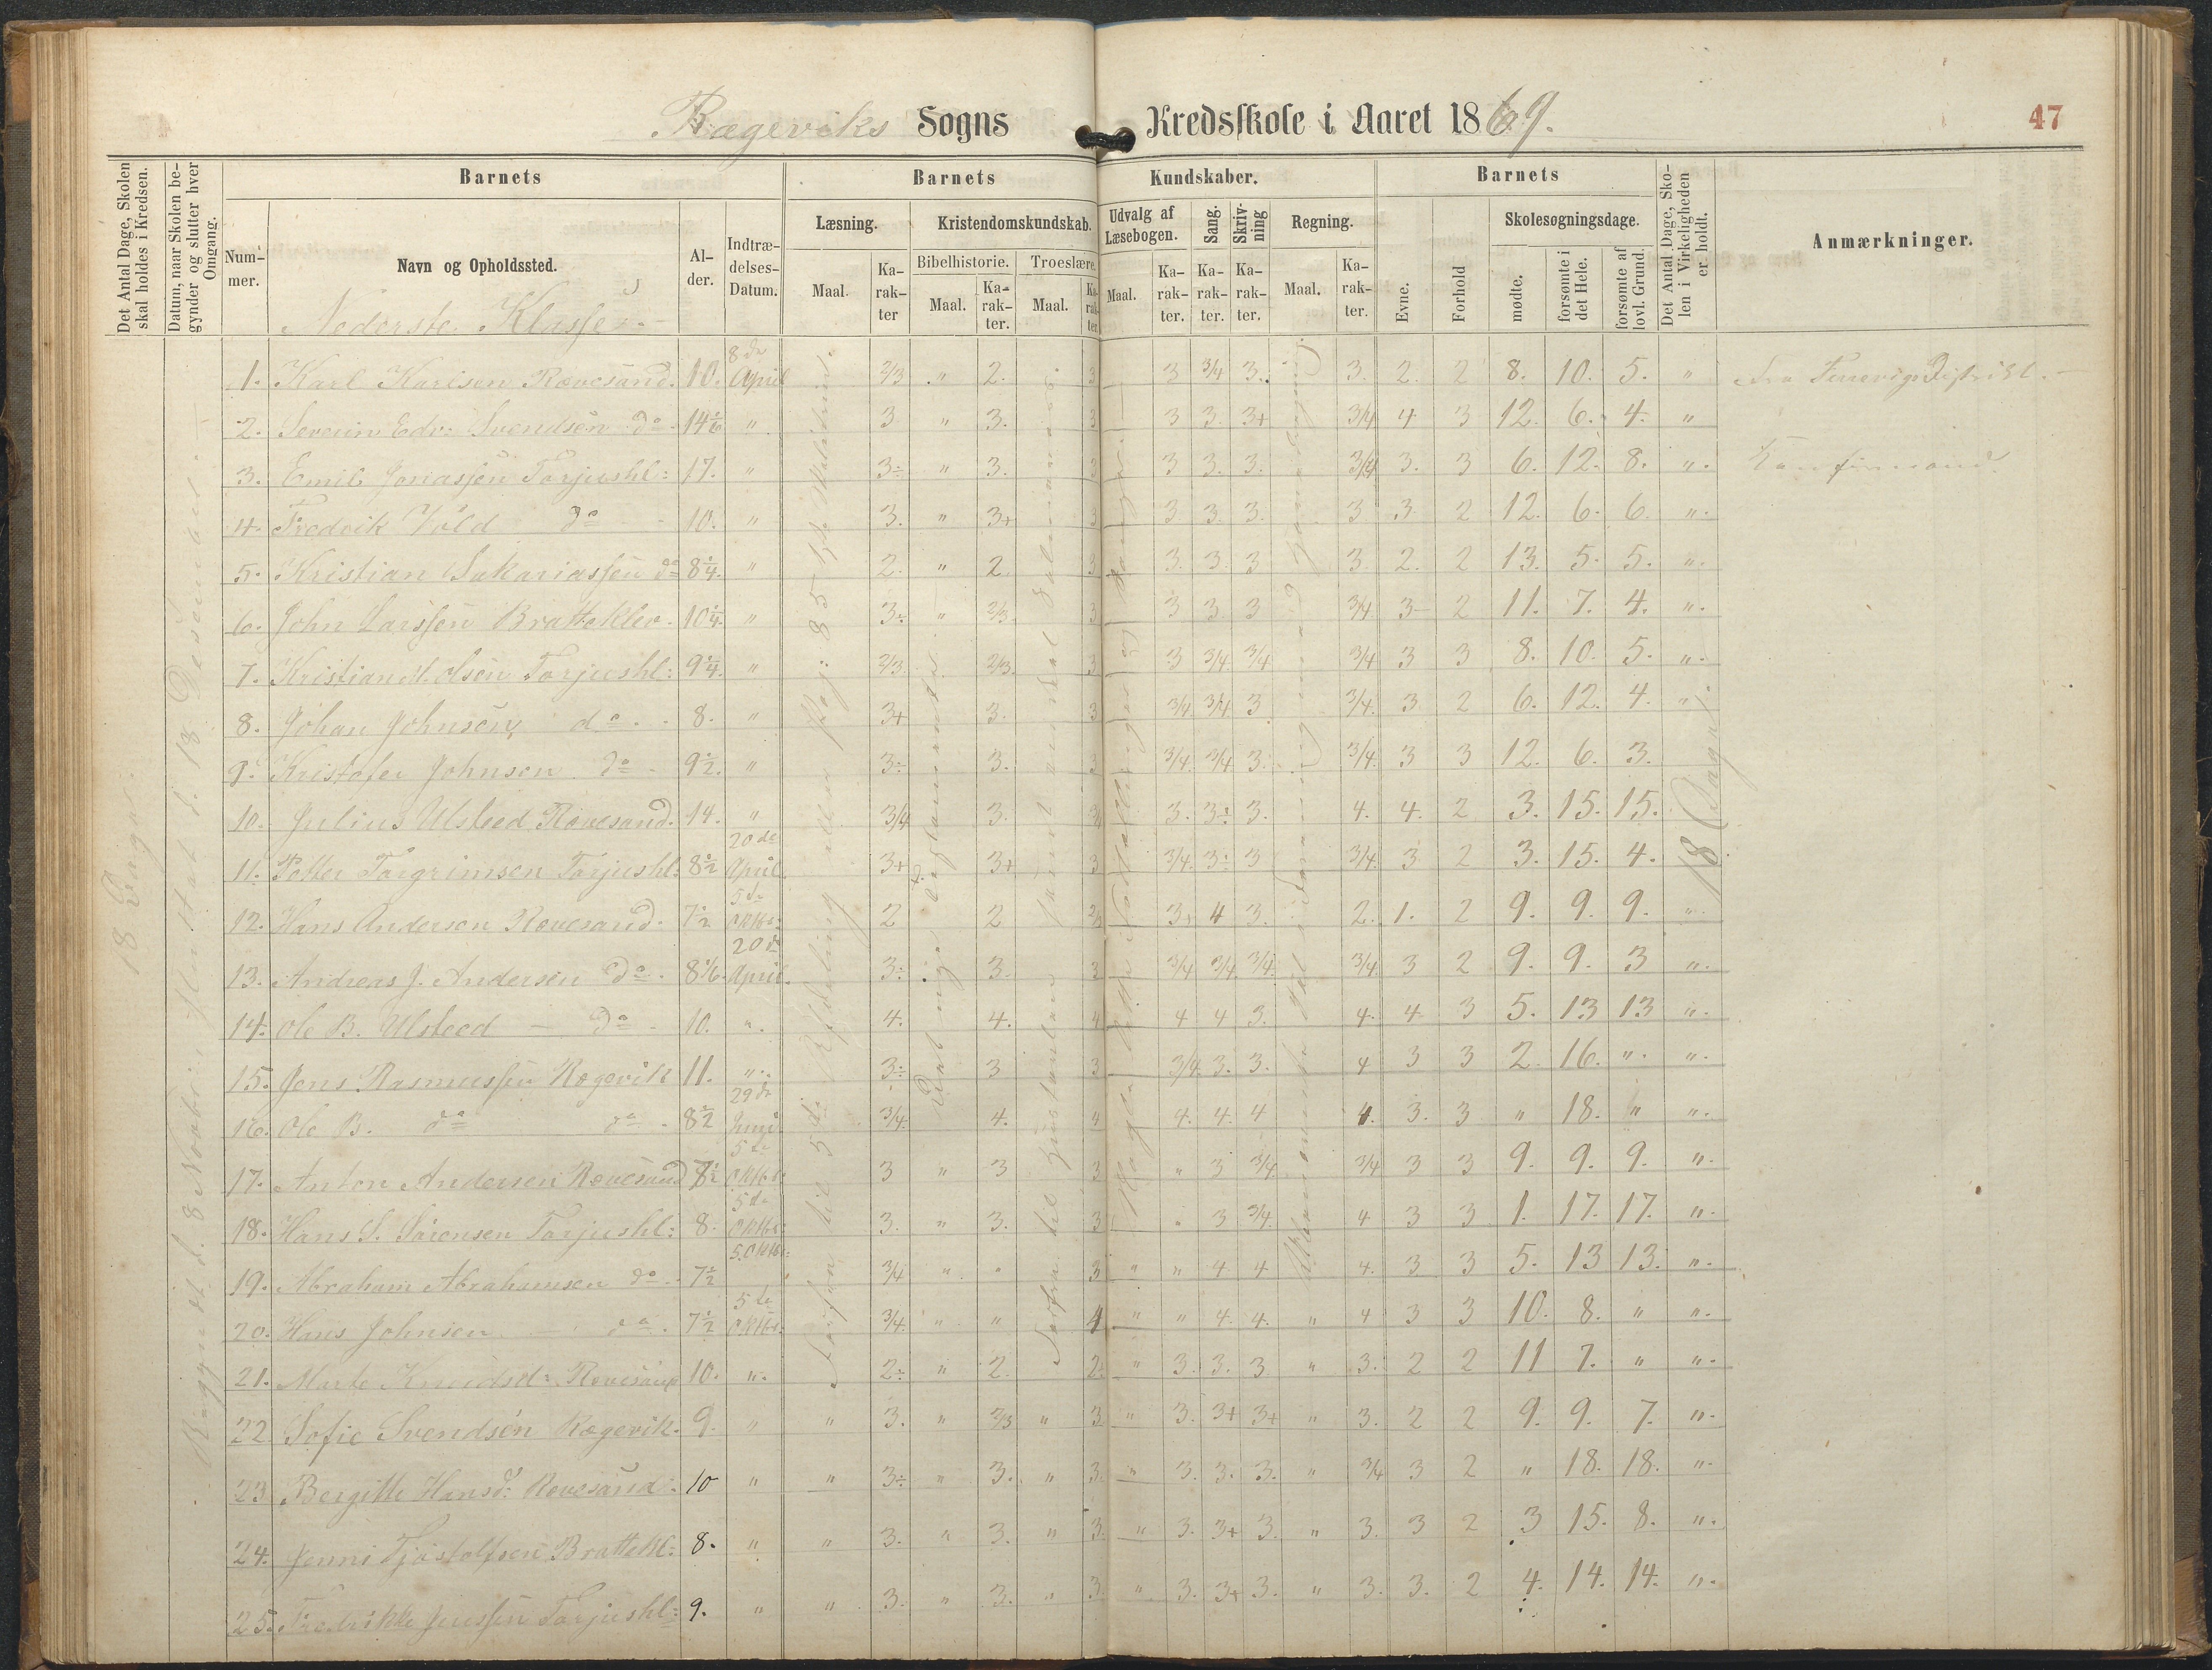 Rægeviks Sogns Kredsskole i Aaret 1869.
47
Det Antal Dage, Skolen skal holdes i Kredsen.
Datum, naar Skolen begynder og slutter hver Omgang.
Barnets
Nummer.
Navn og Opholdssted.
Alder.
Indtrædelses-Datum.
Barnets Kundskaber.
Læsning.
Maal.
Karakter
Kristendomskundskab.
Bibelhistorie.
Maal.
Karakter.
Troeslære.
Maal.
Karakter
Udvalg af Læsebogen.
Maal.
Karakter.
Sang.
Karakter.
Skrivning
Karakter.
Regning.
Maal.
Karakter.
Barnets
Evne.
Forhold
Skolesøgningsdage.
mødte.
forsømte i det Hele.
forsømte af lovl. Grund.
Det Antal Dage, Skolen i Virkeligheden er holdt.
Anmærkninger.
Nederste Klasse.
18 Dage
18 Dage
1. Karl Karlsen Rævesand. 10. 8de April 2/3 " 2. 3 3 3/4 3. 3. 2. 2 8. 10. 5. "
2. Severin Edv: Svendsen do 14 " 3 " 3. 3 3 3. 3+ 3/4 4 3 12. 6. 4. "
3. Emil Jonassen Torjushl: 17. " 3÷ " 3. 3 3 3. 3. 3/4 3. 3 6. 12. 8. " Konfirmand.
4. Fredrik Vold do 10. " 3. " 3+ 3 3 3. 3. 3 3 2 12. 6. 6. "
5. Kristian Sakariassen do 8 1/4. " 2. " 2. 3 3. 3. 3 3. 2. 2 13. 5. 5. "
6. John Larssen Bratteklev. 10 1/4. " 3÷ " 2/3. 3 3 3. 3 3/4 3 2 11. 7. 4. "
7. Kristian Olsen Torjushl: 9 1/4. " 2/3. 2/3. 3 3 3/4. 3/4 3/4 3 3 8. 10. 5. "
8. Johan Johnsen do 8. " 3+ 3. 3 3/4 3/4 3 3/4. 3 2 6. 12. 4. "
9. Kristofer Johnsen do 9 1/2. " 3÷ 3. 3 3/4. 3/4 3. 3/4. 3 3 12. 6. 3.
10. Julius Ulsteed Rævesand. 14. " 3/4 3. 3/4 3. 3÷ 3. 4. 4. 2 3. 15. 15.
11. Petter Torgrimsen Torjushl: 8 1/2 20de April. 3+ 3+ 3 3/4. 3÷ 3 3/4. 3 2 3. 15. 4.
12. Hans Andersen Rævesand. 7 1/2 5de Oktbr: 2 2 3+ 4 3. 2. 1. 2 9. 9. 9. "
13. Andreas J. Andersen do 8 1/6. 20de April. 3÷ 3. 3 3/4 3/4. 3/4. 3/4 3 2 9. 9. 3 "
14. Ole B. Ulsteed — do 10. " 4. 4. 4 4 4 3. 4. 4 3 5. 13 13 "
15. Jens Rasmussen Rægevik 11. " 3÷ 3 3 3/4. 3. 3. 4 3 3 2. 16. " "
16. Ole B. do do 8 1/2 29de Juni 3/4. 4. 4 4. 4. 4 4. 3. 3 " 18. " "
17. Anton Andersen Rævesand 7 1/2 5de Oktbr 3 " 3 3 " 3 3/4 3/4 3 3 9. 9. 9. "
18. Hans S. Sørensen Torjushl: 8. 5de Oktbr: 3. " 3. 3 " 3 3/4. 4 3 3 1. 17. 17. "
19. Abraham Abrahamsen do 7 1/2 5. Oktbr: 3/4 " " 3 " " 4 4 4. 3 3 5. 13 13. "
20. Hans Johnsen do 7 1/2 5de Oktbr: 3/4. " " 4 " " 4. 4. " 4 3 3 10. 8. " "
21. Marte Knudsd: Rævesand 10. " 2÷ " 2. 2. " 3. 3. 3 " 3. 2 2 11 7. " "
22. Sofie Svendsen Rægevik. 9. " " 3. " 2/3 " 3. " 3. 3+ 3+ " 3. 2 2 9. 9. 7. "
23. Bergitte Hansd: Rævesand: 10 " " 3÷ " 3. " 3. " 3. 3. 3. " 3/4 3 2 " 18. 18. "
24. Jenni Tjøstolfsen Brattekl: 8. " " 3. " 3. " 3. " 3. 3+ 3. " 3. 3 2 3 15. 8. "
25. Fredrikke Jenssen Torjushl: 9. " " 3. " 3. " 3. " 3. 3+ 3. " 3. 3. 2 4. 14. 14. "